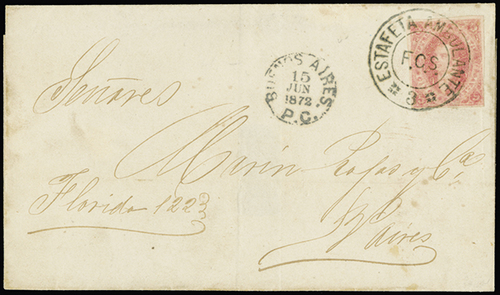 ESTAFETA AMBULANTE
F.C.S.
3
BUENOS AIRES
15
JUN
1872
P.C.
Señores
Marin Rojas y Ca.
Florida 122
Bs Aires